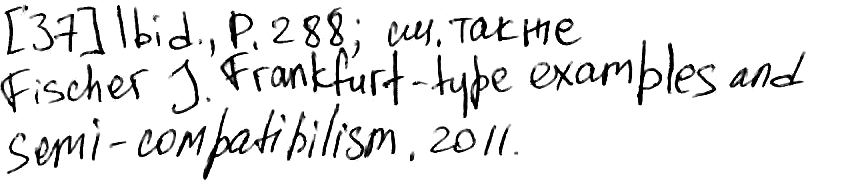 [37] Ibid., P. 288; см. также
Fischer J. Frankfurt-type examples and
semi-compatibilism. 2011.